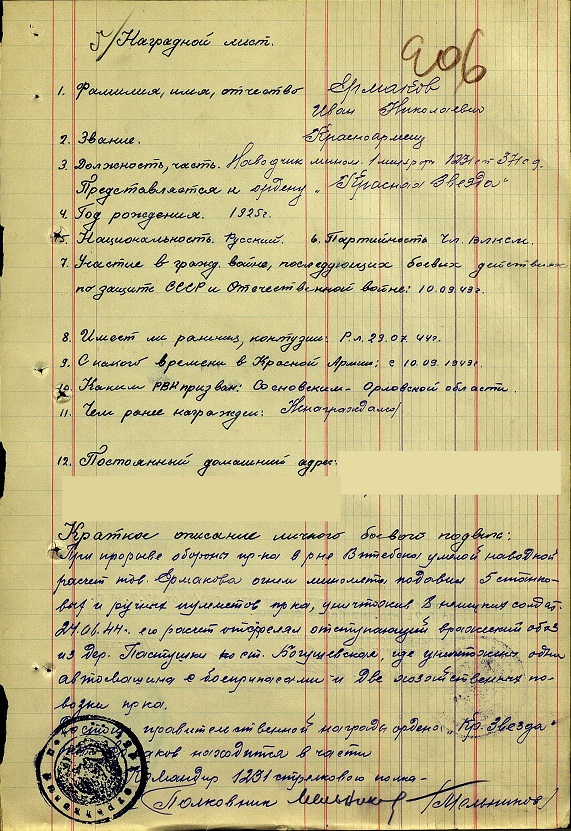 5/ Наградной лист.
906
1. Фамилия, имя, отчество Ермаков
Иван Николаевич
2. Звание. Красноармеец
3. Должность, часть. Наводчик мином. 1 1231 сп 371 сд.
Представляется к ордену „Красная Звезда"
4. Год рождения. 1925г.
5. Национальность. Русский. 6. Партийность Чл. ВЛКСМ.
7. Участие в гражд. войне, последующих боевых действиях
по защите СССР и Отечественной войне: 10.09.43г.
8. Имеет ли ранения, контузии: Р.л. 29.07.44г.
9. С какого времени в Красной Армии: с 10.09.1943г.
10. Каким РВК призван: Сосновским - Орловской области.
11. Чем ранее награжден: Ненаграждался
12. Постоянный домашний адрес:
Краткое описание личного боевого подвига:
При прорыве обороны пр-ка в р-не Витебска умелой наводкой
расчет тов. Ермакова огнем миномета подавил 5 станко-
вых и ручных пулеметов пр-ка, уничтожив 8 немецких солдат.
24.06.44г. его расчет отстрелял отступающий вражеский обоз
из дер. Пастушки к ст. Богушевская, где уничтожены одна
автомашина с боеприпасами и две хозяйственных по-
возки пр-ка.
правительственной награды ордена „Кр. Звезда"
находится в части
Командир 1231 стрелкового полка -
Полковник /Мельников/